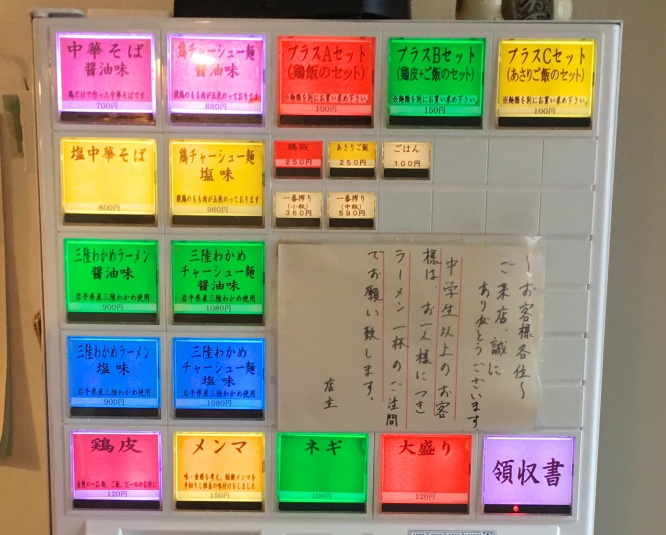 中華そば
醤油味
鶏だけで作った中華そばです
700円
鶏チャーシュー麺
醤油味
880円
プラスAセット
(鶏飯のセット)
※麺類を別にお買い求め下さい。
100円
プラスBセット
(鶏皮+ご飯のセット)
※麺類を別にお買い求め下さい。
150円
プラスCセット
(あさりご飯のセット)
※麺類を別にお買い求め下さい。
100円
塩中華そば
800円
鶏チャーシュー麺
塩味
親鶏のもも肉が五枚のっております
980円
鶏飯
250円
あさりご飯
250円
ごはん
100円
一番搾り
(小瓶)
360円
一番搾り
(中瓶)
590円
三陸わかめラーメン
醤油味
岩手県産三陸わかめ使用
900円
三陸わかめ
チャーシュー麺
醤油味
岩手県産三陸わかめ使用
1080円
〜お客様各位〜
ご来店、誠に
ありがとうございます
中学生以上のお客
様は、お一人様につき
ラーメン一杯のご注間
でお願い致します。
店主
三陸わかめラーメン
塩味
岩手県産三陸わかめ使用
900円
三陸わかめ
チャーシュー麺
塩味
岩手県産三陸わかめ使用
1080円
鶏皮
120円
メンマ
味・食感を考え、短冊メンマを
手切りし独自の味付けをしました
150円
ネギ
100円
大盛り
120円
領収書